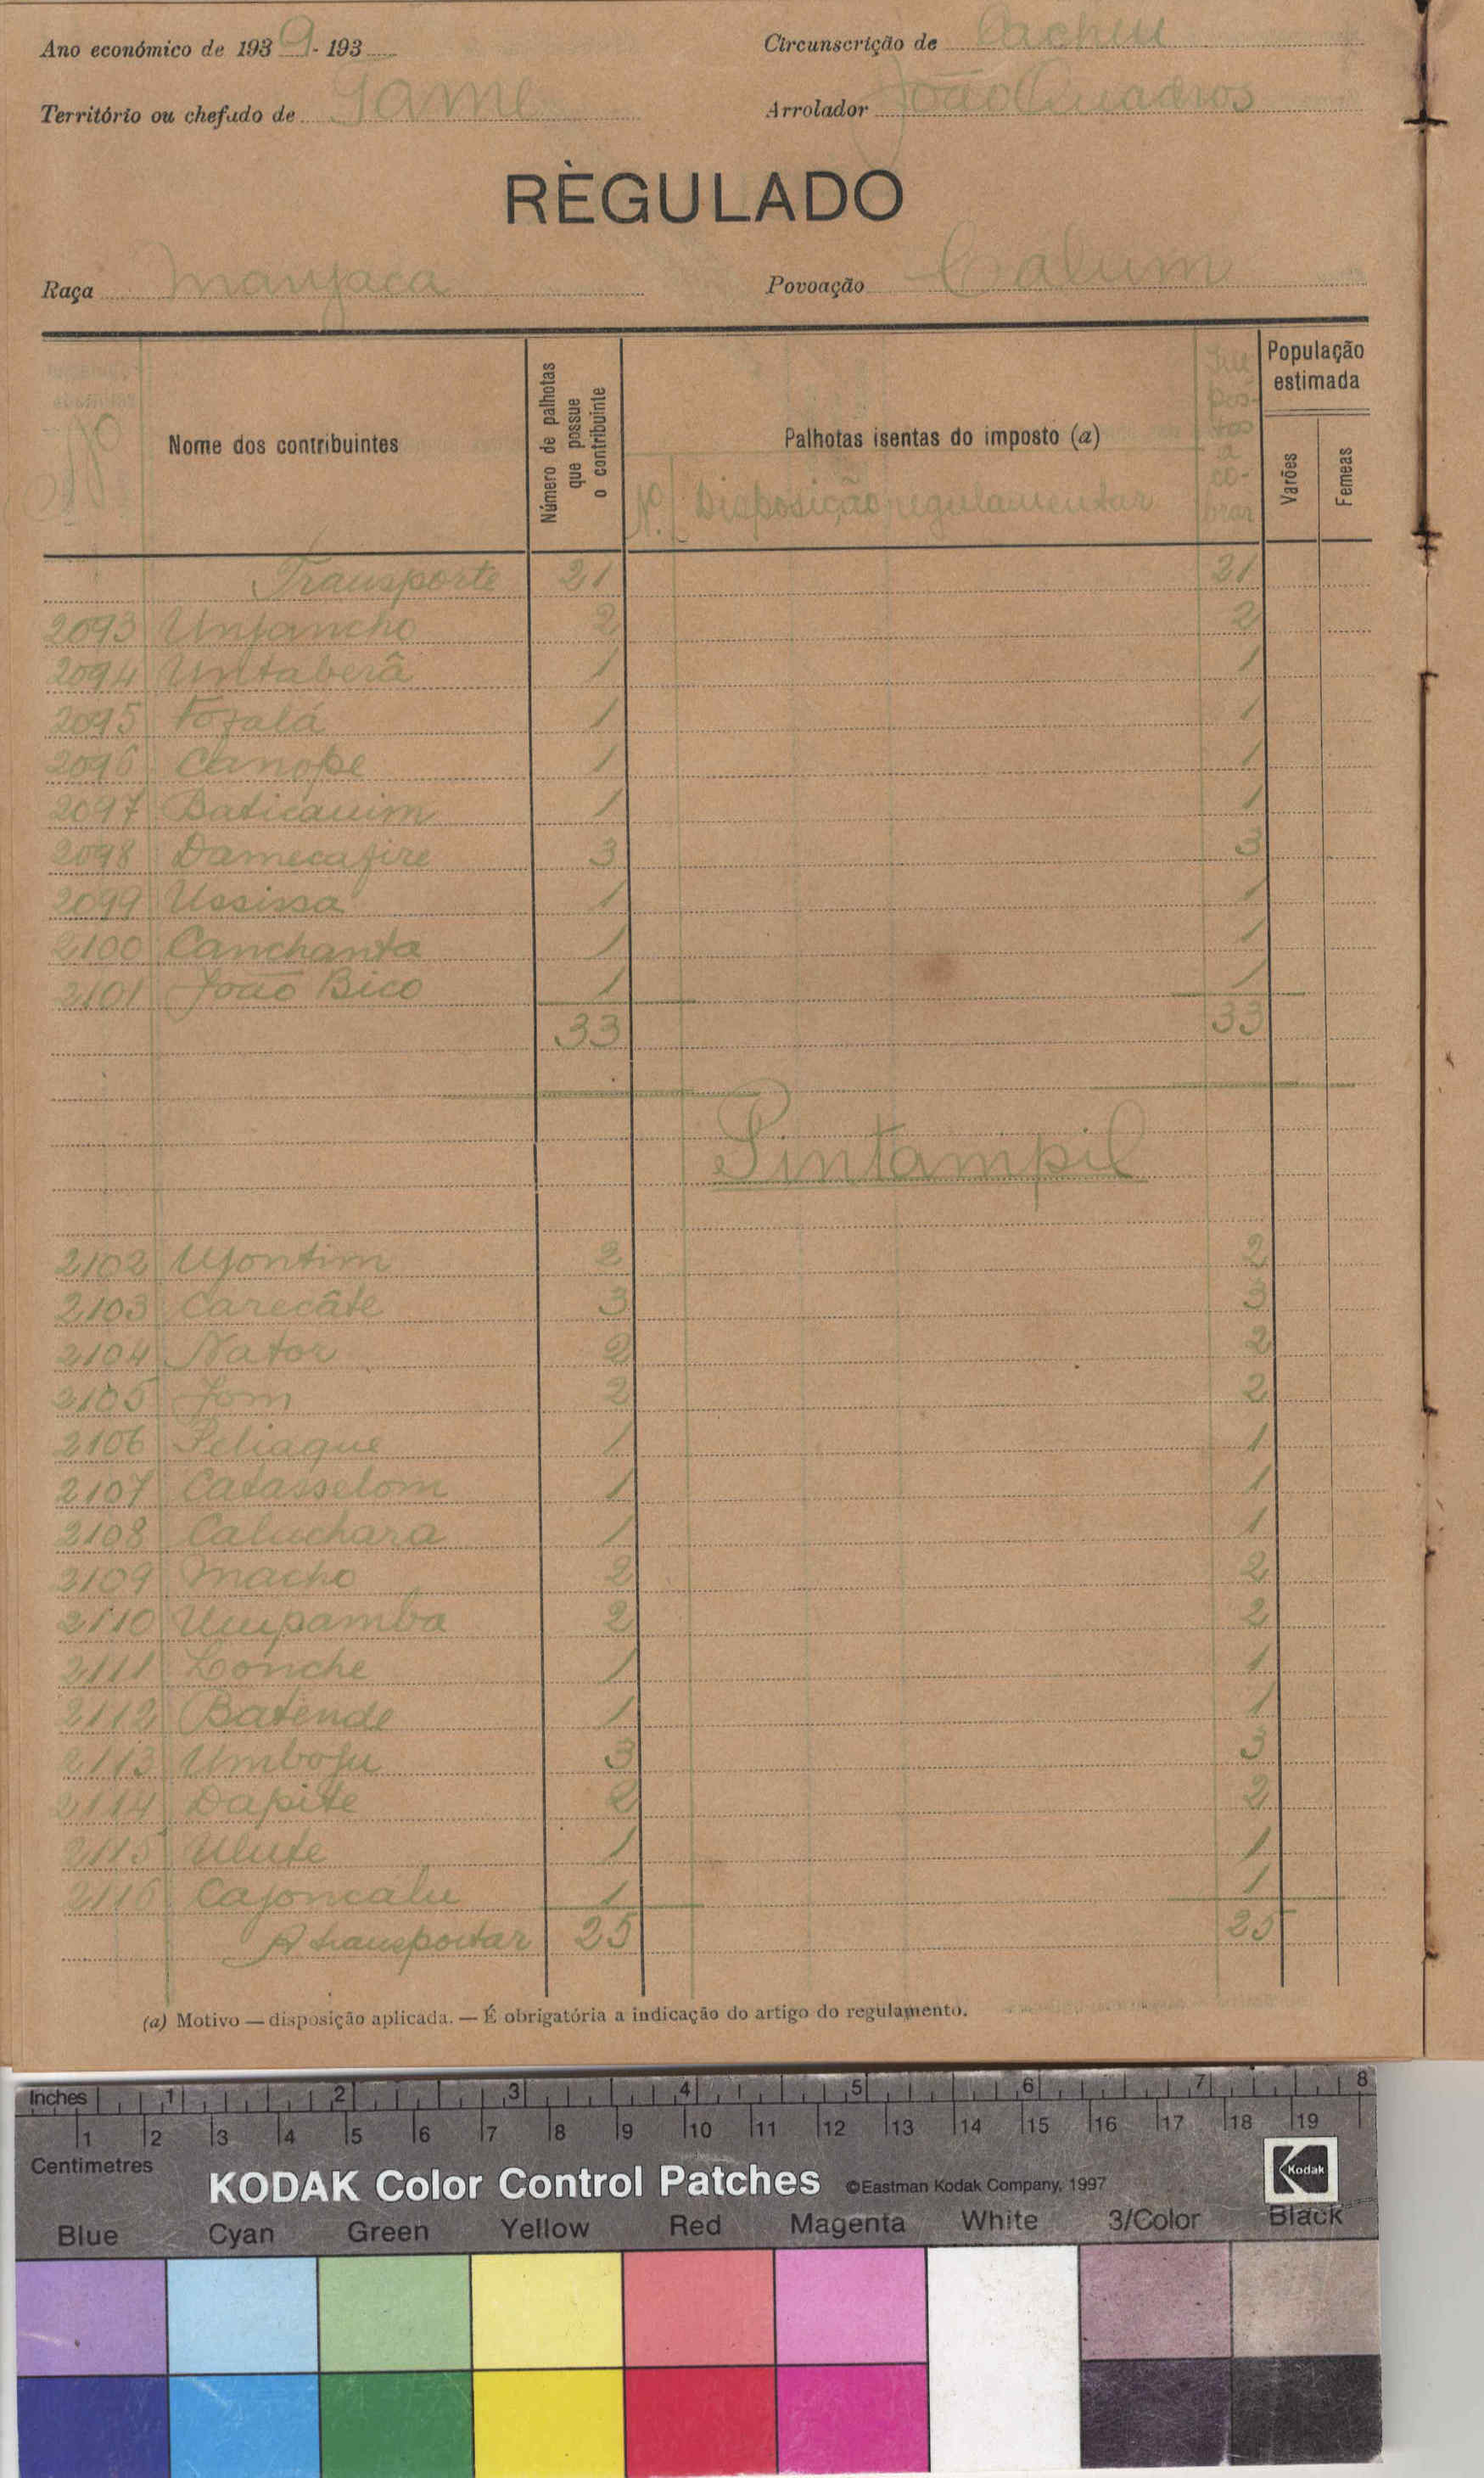 Ano económico de 1939-193
Circunscrição de Cacheu
Território ou chefado de Jame
Arrolador João Quadros
RÈGULADO
Raça Manjaca
Povoação Calum
Nº
Nome dos contribuintes
Número de palhotas que possue o contribuinte
Palhotas isentas do imposto (a)
Nº. Disposição regulamentar
Im-
pos-
tos
a
co-
brar
População estimada
Varões
Femeas
Transporte 21 21
2093 Unjancho 2 2
2094 Untaberâ 1 1
2095 Fofalá 1 1
2096 Canope 1 1
2097 Baticauim 1 1
2098 Damecafire 3 3
2099 Ussissa 1 1
2100 Canchanta 1 1
2101 João Bico 1 1
33 33
Pintampil
2102 Ujontim 2 2
2103 Carecâte 3 3
2104 Nator 2 2
2105 Jom 2 2
2106 Peliaque 1 1
2107 Catasselom 1 1
2108 Caluchara 1 1
2109 Macho 2 2
2110 Uupamba 2 2
2111 Lonche 1 1
2112 Batende 1 1
2113 Umboju 3 3
2114 Dapite 2 2
2115 Ulute 1 1
2116 Cajoncalu 1 1
A transportar 25 25
(a) Motivo — disposição aplicada. — É obrigatória a indicação do artigo do regulamento.
Inches 1 2 3 4 5 6 7 8
1 2 3 4 5 6 7 8 9 10 11 12 13 14 15 16 17 18 19
Centimetres
KODAK Color Control Patches ©Eastman Kodak Company, 1997 Kodak
Blue Cyan Green Yellow Red Magenta White 3/Color Black